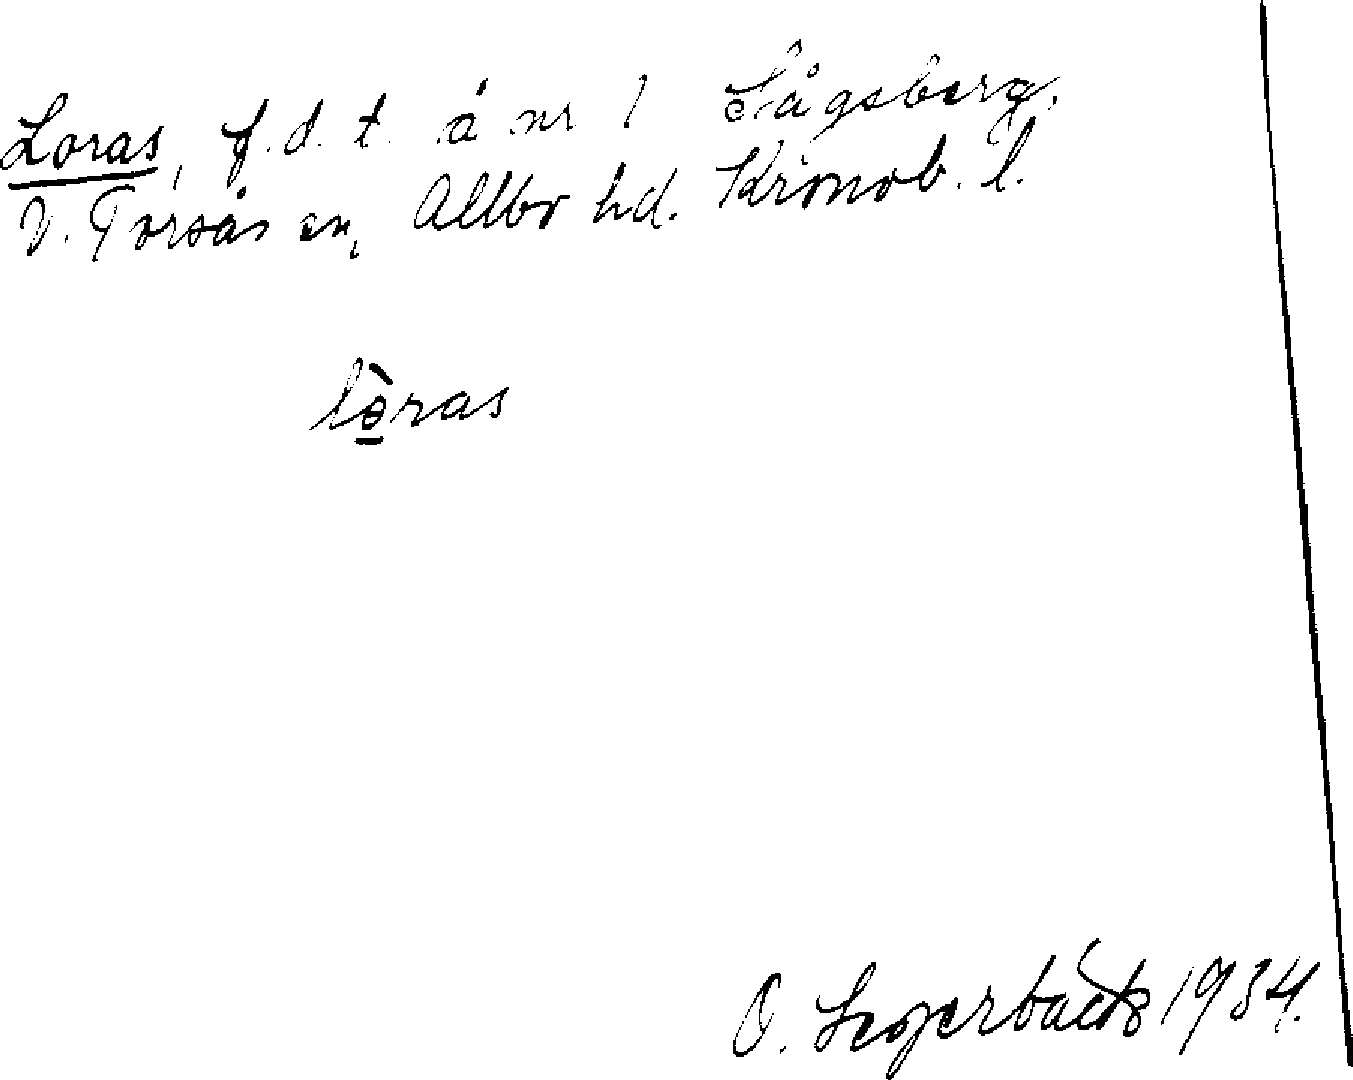 Loras, f.d. t. å nr 1 Sågsberg.
V. Torsås sn, Allbo hd. Kronob. l.
lò̲ras
O. Segerbäck 1934.